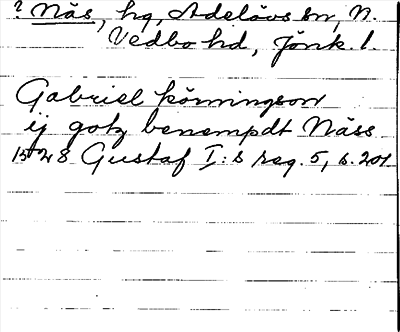 ? Näs, hg, Adelövs sn, N.
Vedbo hd, Jönk. l.
Gabriel körningson
ij gotz benempdt Näss
1528 Gustaf I:s reg. 5, s. 201